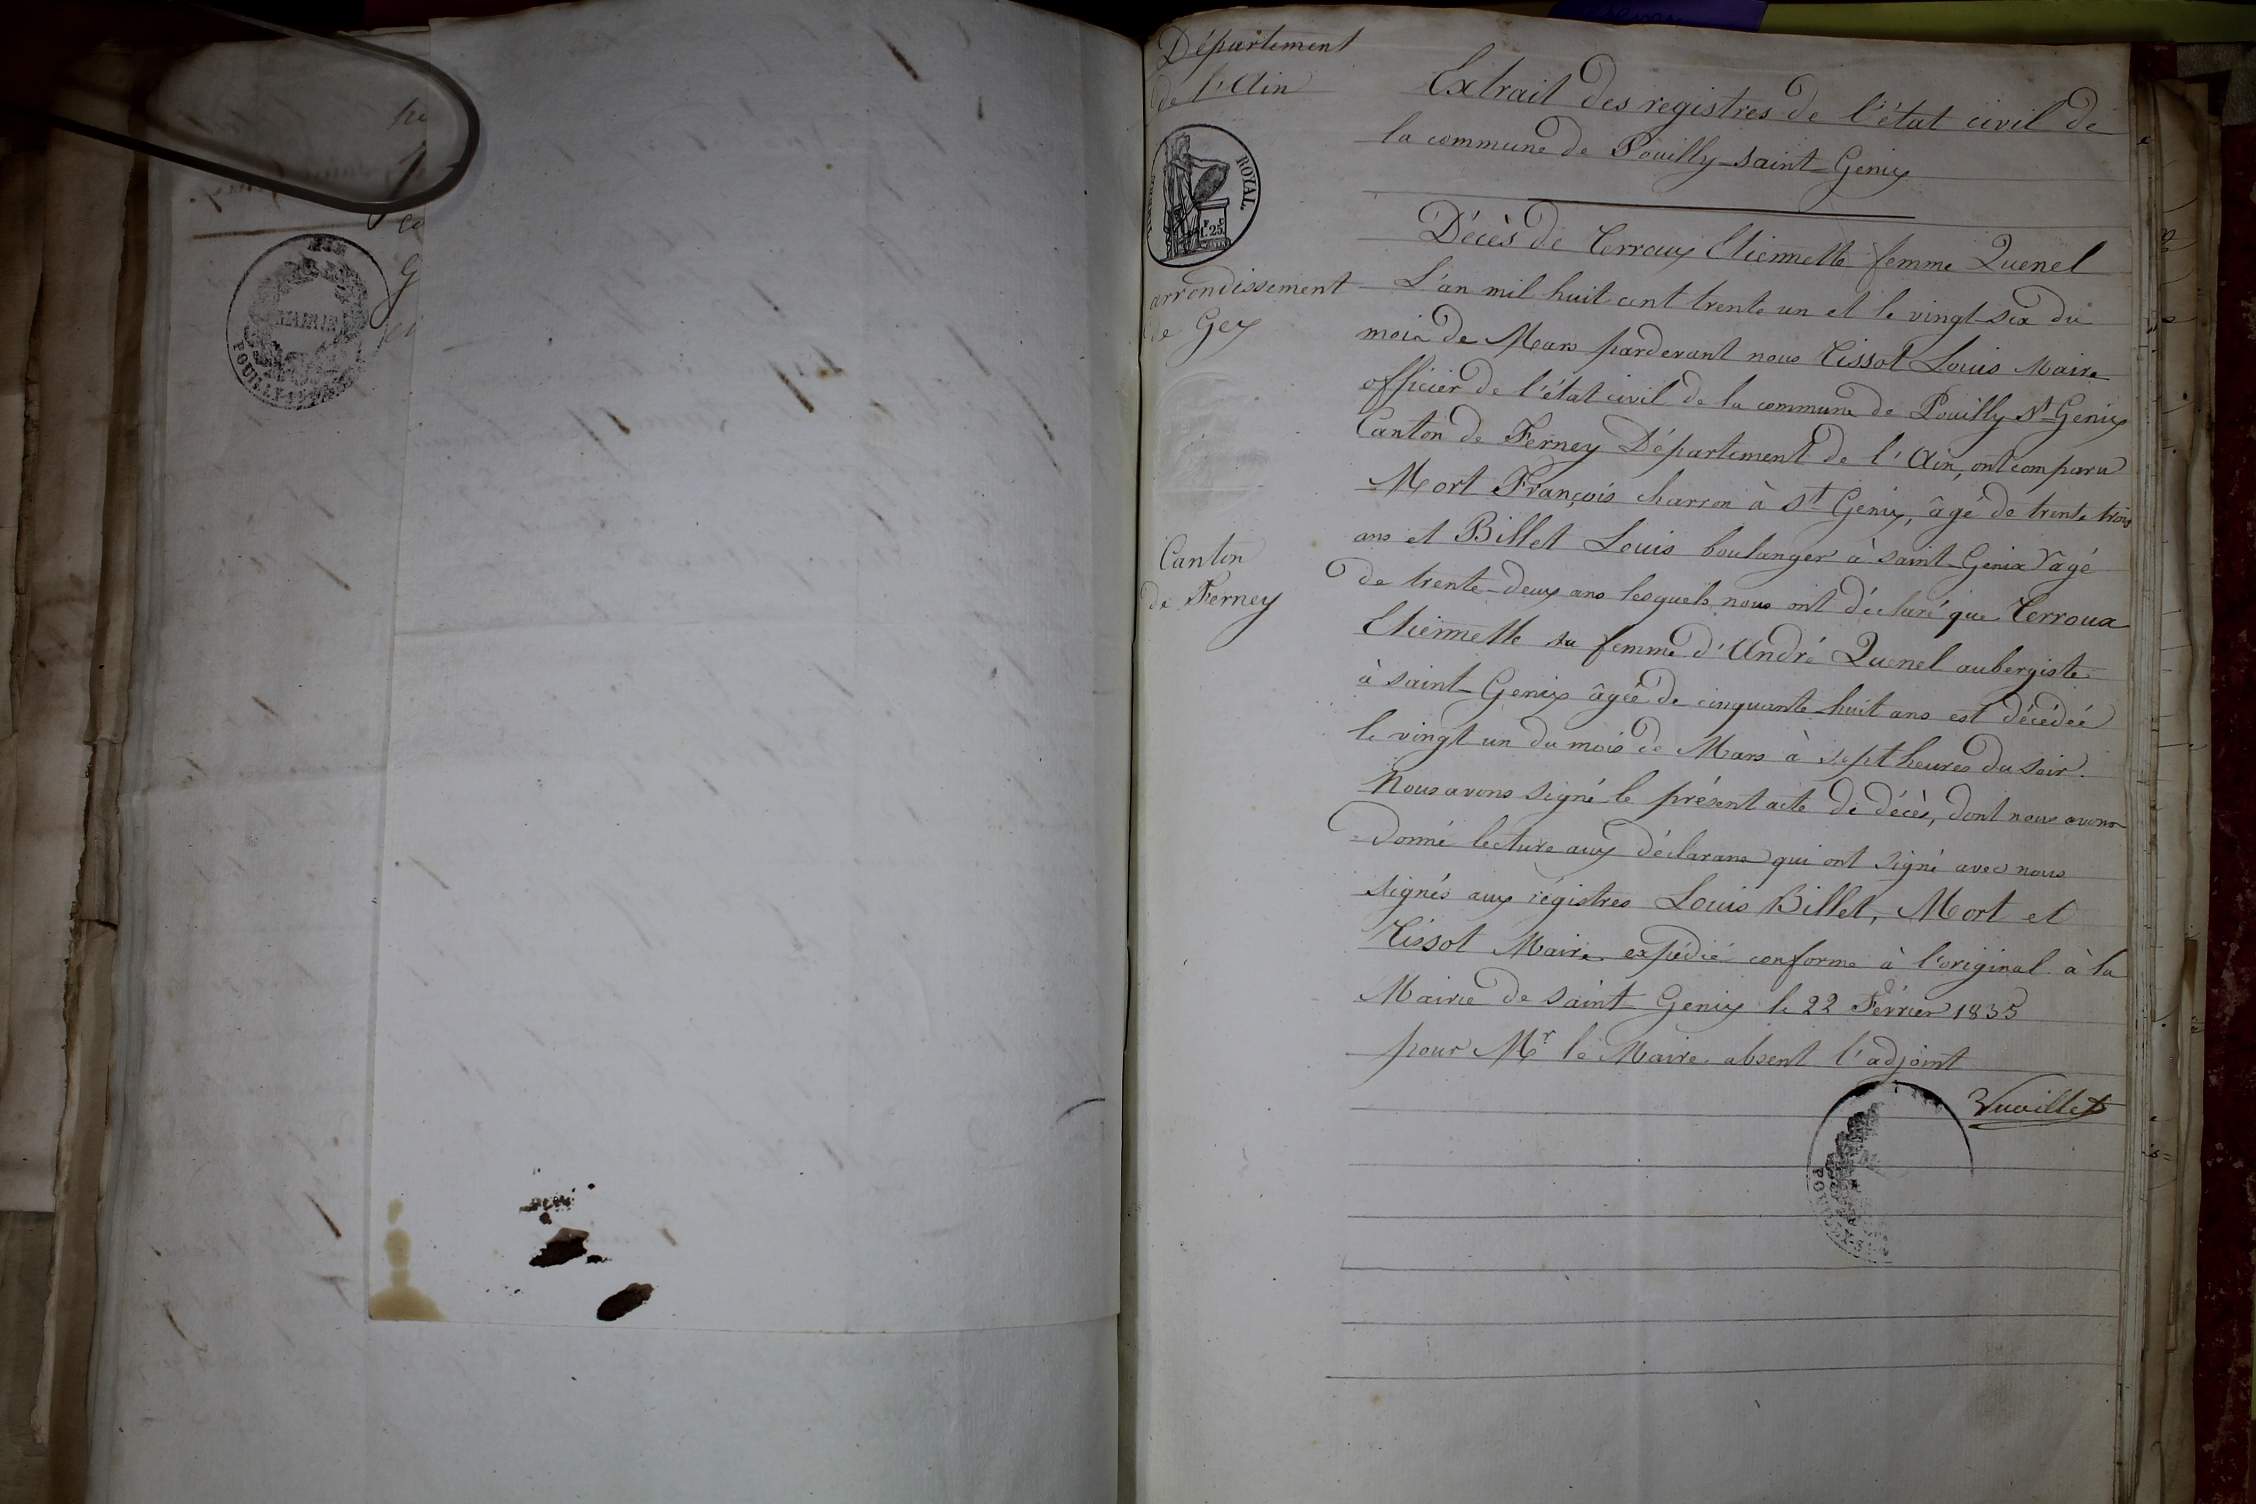 Département
de l'Ain
ROYAL
1.25
arrondissement
de Gex
Canton
de Ferney
MAIRIE
Extrait des registres de l'état civil de
la commune de Pouilly-saint-Genix
Décès de Terroux Etiennette femme Quenel
L'an mil huit cent trente un et le vingt-six du
mois de Mars pardevant nous Tissot Louis Maire
officier de l'état civil de la commune de Pouilly St Genix
Canton de Ferney Département de l'Ain, ont comparu
Mort François charron à St Genix, âgé de trente trois
ans et Billet Louis boulanger à saint-Genix âgé
de trente-deux ans lesquels nous ont déclaré que Terroux
Etiennette sa femme d'André Quenel aubergiste
à saint-Genix âgée de cinquante-huit ans est décédée
le vingt un du mois de Mars à sept heures du soir.
Nous avons signé le présent acte de décès, dont nous avons
donné lecture aux déclarans qui ont signé avec nous
signés aux régistres Louis Billet, Mort et
Tissot Maire expédié conforme à l'original à la
Mairie de saint Genix le 22 Février 1835
pour Mr le Maire absent l'adjoint
Vuaillet